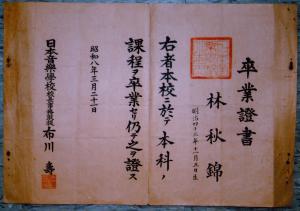 卒業證書
林秋錦
明治四十二年十一月三日生
右者本校ニ於テ本科ノ
課程ヲ卒業セリ仍テ之ヲ證ス
昭和八年三月二十一日
日本音樂學校
布川壽